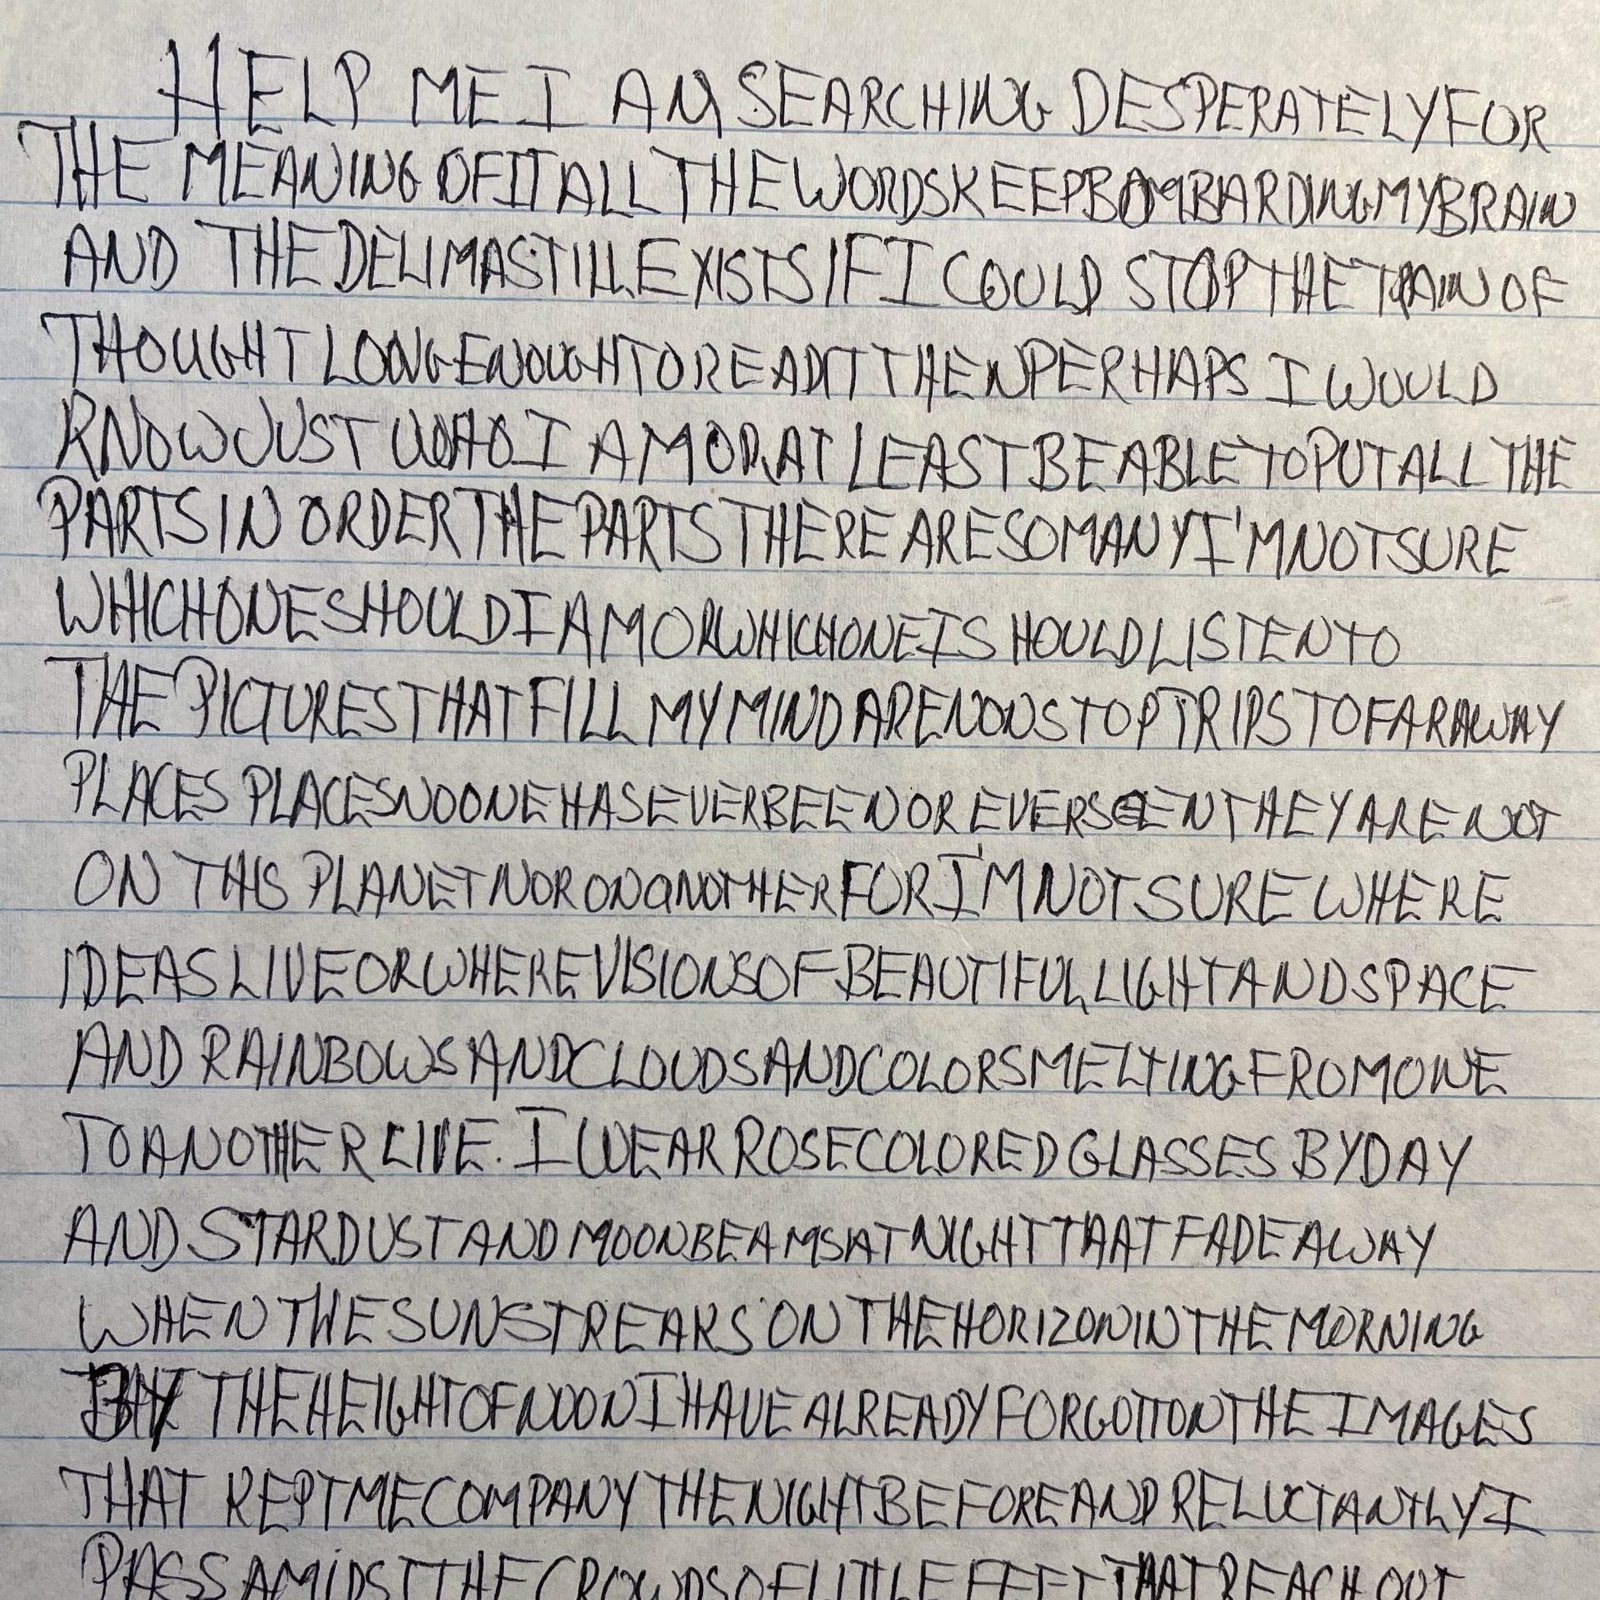 HELP ME I AM SEARCHING DESPERATELY FOR
THE MEANING OF IT ALL THE WORDS KEEP BOMBARDING MY BRAIN
AND THE DELIMA STILL EXISTS IF I COULD STOP THE TRAIN OF
THOUGHT LONG ENOUGH TO READ IT THEN PERHAPS I WOULD
KNOW JUST WHO I AM OR AT LEAST BE ABLE TO PUT ALL THE
PARTS IN ORDER THE PARTS THERE ARE SO MANY I'M NOT SURE
WHICH ONE SHOULD I AM OR WHICH ONE I SHOULD LISTEN TO
THE PICTURES THAT FILL MY MIND ARE NON STOP TRIPS TO FAR AWAY
PLACES PLACES NO ONE HAS EVER BEEN OR EVER SEEN THEY ARE NOT
ON THIS PLANET NOR ON ANOTHER FOR I'M NOT SURE WHERE
IDEAS LIVE OR WHERE VISIONS OF BEAUTIFUL LIGHT AND SPACE
AND RAINBOWS AND CLOUDS AND COLORS MELTING FROM ONE
TO ANOTHER LIVE. I WEAR ROSE COLORED GLASSES BY DAY
AND STARDUST AND MOONBEAMS AT NIGHT THAT FADE AWAY
WHEN THE SUN STREAKS ON THE HORIZON IN THE MORNING
BY THE HEIGHT OF NOON I HAVE ALREADY FORGOTTON THE IMAGES
THAT KEPT ME COMPANY THE NIGHT BEFORE AND RELUCTANTLY I
PASS AMIDST THE CROWDS OF LITTLE FEET THAT REACH OUT